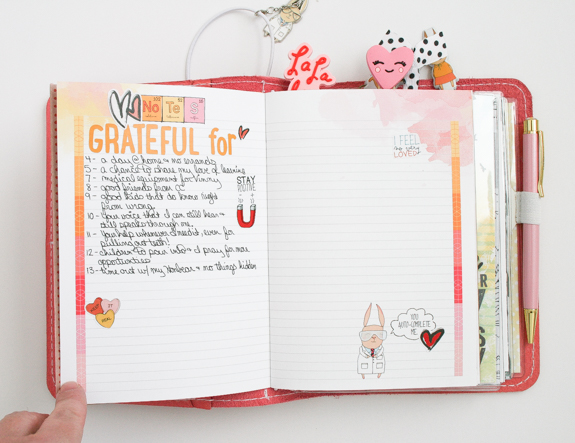 La
La
No Te S
GRATEFUL for
4- a day @ home & no errands
5- a chance to share my love of learning
7- medical equipment for
8- good friends from CC
9- good kids that do know right
from wrong.
10- You voice that I can still hear &
still speaks through me.
11- You help whenever I need it, even for
pulling out teeth!
12- children to pour into & I pray for more
opportunities
13- time out w/ my & no things hidden
STAY
POSITIVE
I FEEL
so very
LOVED
YOU
AUTO-COMPLETE
ME.